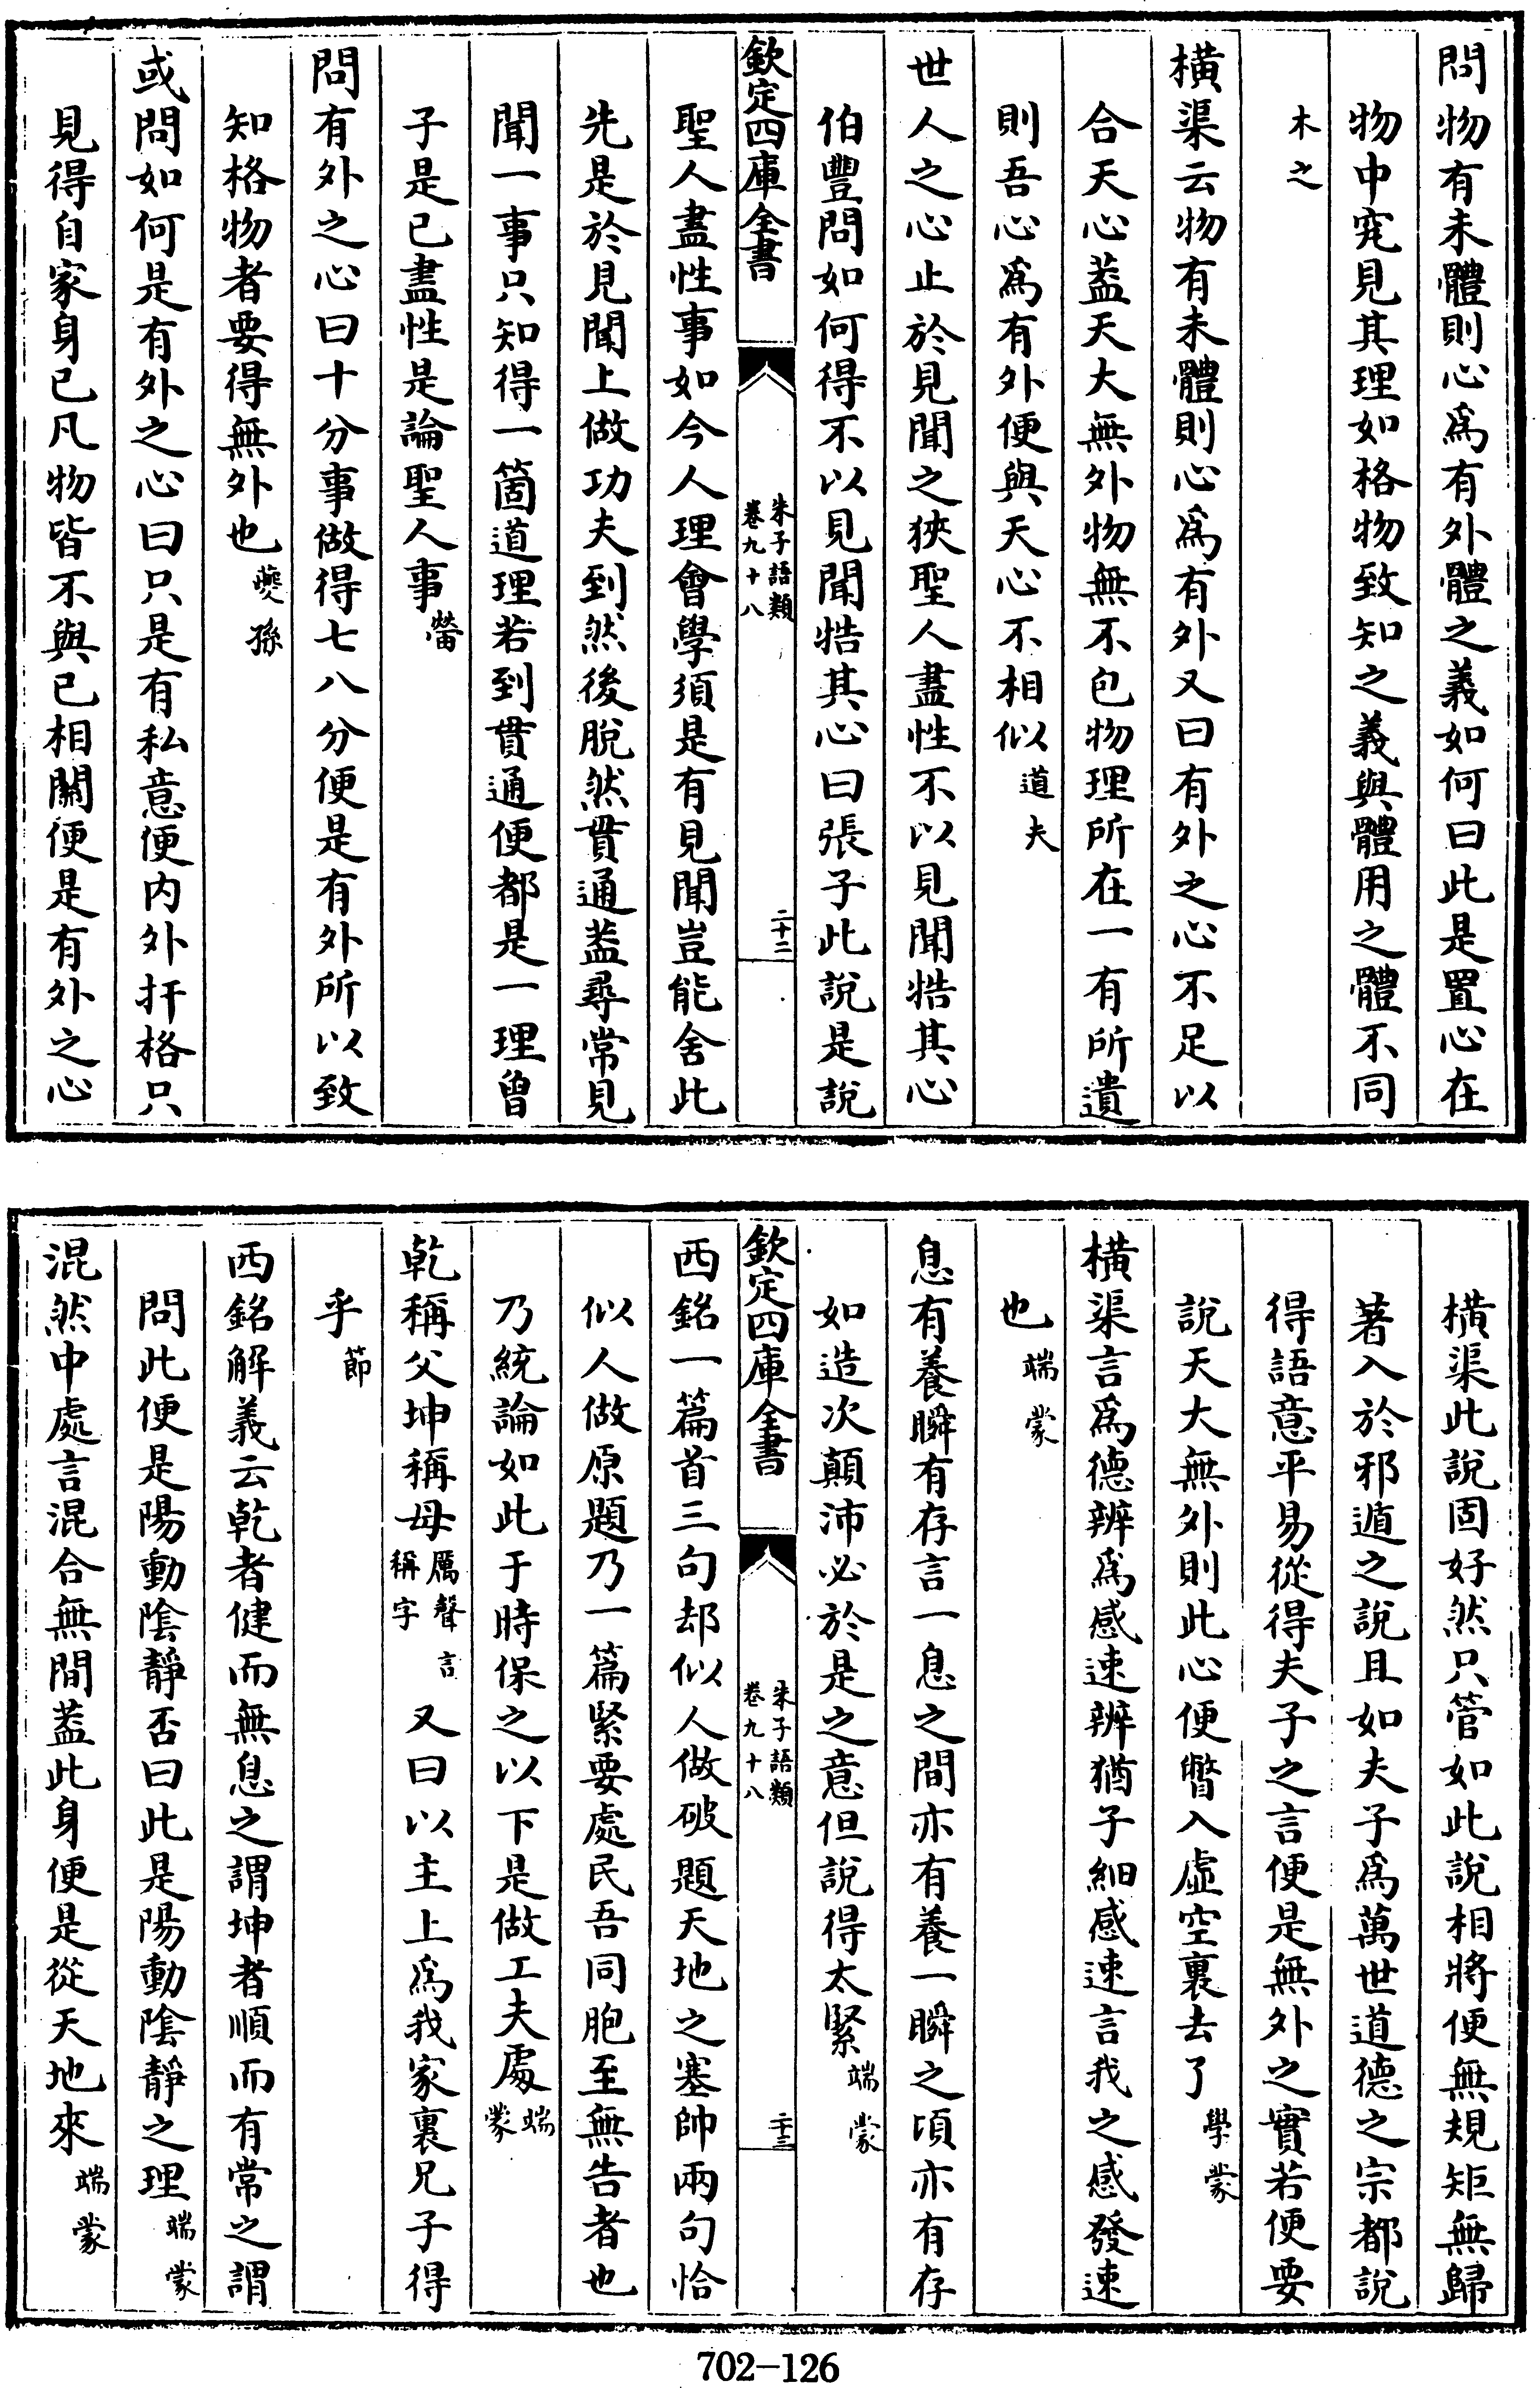 問物有未體則心爲有外體之義如何曰此是置心在
物中究見其理如格物致知之義與體用之體不同
木之
橫渠云物有未體則心爲有外又曰有外之心不足以
合天心蓋天大無外物無不包物理所在一有所遺
則吾心爲有外便與天心不相似道夫
世人之心止於見聞之狹聖人盡性不以見聞牿其心
伯豐問如何得不以見聞牿其心曰張子此說是說
欽定四庫全書
朱子語類
卷九十八
二十二
聖人盡性事如今人理會學須是有見聞豈能舍此
先是於見聞上做功夫到然後脫然貫通蓋尋常見
聞一事只知得一箇道理若到貫通便都是一理曾
子是已盡性是論聖人事㽦
問有外之心曰十分事做得七八分便是有外所以致
知格物者要得無外也夔孫
或問如何是有外之心曰只是有私意便内外扞格只
見得自家身已凡物皆不與已相關便是有外之心
橫渠此說固好然只管如此說相將便無規矩無歸
著入於邪遁之說且如夫子爲萬世道德之宗都說
得語意平易從得夫子之言便是無外之實若便要
說天大無外則此心便瞥入虛空裏去了學蒙
橫渠言爲德辨爲感速辨猶子細感速言我之感發速
也端蒙
息有養瞬有存言一息之間亦有養一瞬之頃亦有存
如造次顛沛必於是之意但說得太緊端蒙
欽定四庫全書
朱子語類
卷九十八
二十三
西銘一篇首三句却似人做破題天地之塞帥兩句恰
似人做原題乃一篇緊要處民吾同胞至無告者也
乃統論如此于時保之以下是做工夫處端蒙
乾稱父坤稱母厲聲言稱字又曰以主上爲我家裏兄子得
乎節
西銘解義云乾者健而無息之謂坤者順而有常之謂
問此便是陽動陰靜否曰此是陽動陰靜之理端蒙
混然中處言混合無間蓋此身便是從天地來端蒙
702-126